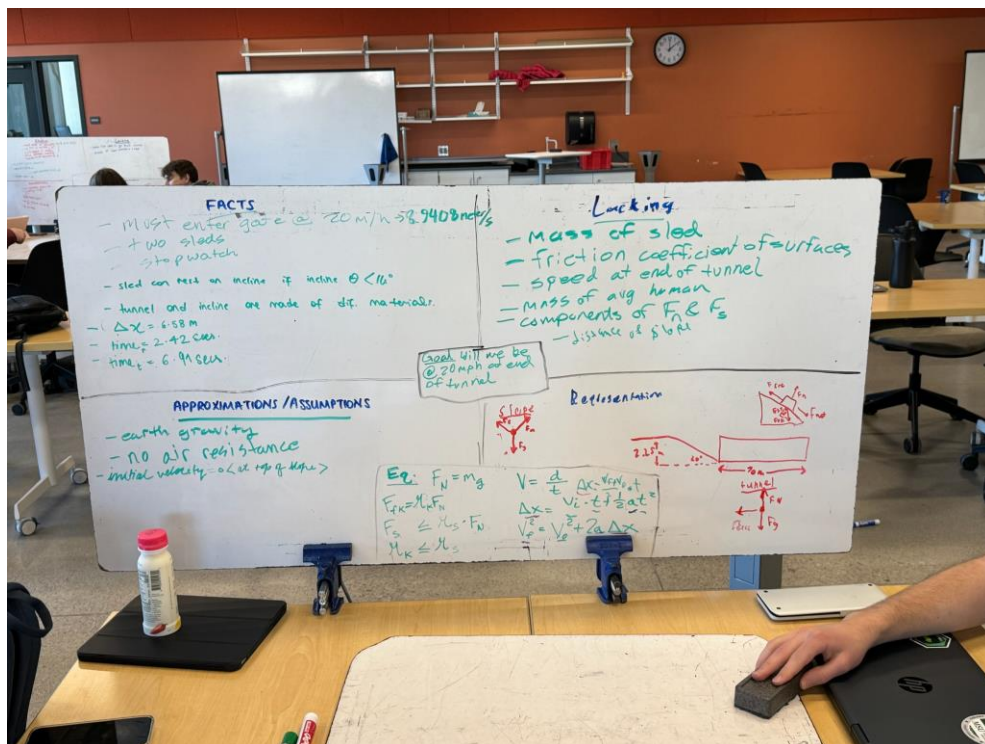 FACTS
- Must enter gate @ 20 mi/h → 8.9408 meter/s
- two sleds
- stopwatch
- sled can rest on incline if incline θ < 16°
- tunnel and incline are made of dif. materials.
- Δx = 6.58 m
- time = 2.42 secs.
- time = 6.91 secs.
Lacking
- Mass of sled
- friction coefficient of surfaces
- speed at end of tunnel
- mass of avg human
- components of Fn & Fs
- distance of slope
Goal will we be
@ 20mph at end
of tunnel
APPROXIMATIONS / ASSUMPTIONS
- earth gravity
- no air resistance
- initial velocity = 0 < at top of slope >
Representation
Slope
20°
70m
tunnel
Fg
Eq: F_N = mg
F_fk = μ_k F_N
F_s ≤ μ_s · F_N
μ_k ≤ μ_s
V = d/t
Δx = Vi · t + ½at²
+ 2a Δx
hp